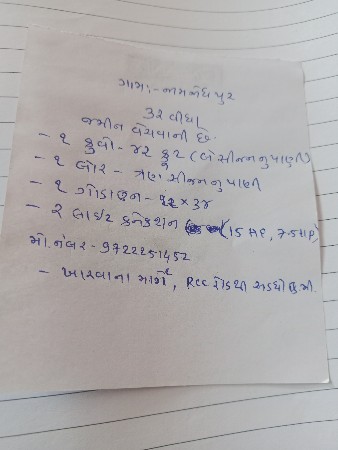 ગામ:- નામલધપુર
૩૨ વીઘા
જમીન વેચવાની છે.
- ૧ કુવો - ૪૨ ફુટ (બે સીઝનનુ પાણી)
- ૧ બોર - ત્રણ સીઝનનુ પાણી
- ૧ ગોડાઉન - ૧૨ × ૩૪
- ૨ લાઈટ કનેક્શન (15 HP, 7.5 HP)
મો. નંબર - 9722251452
- ખારવાના માર્ગે, RCC રોડથી અડધો કી.મી.